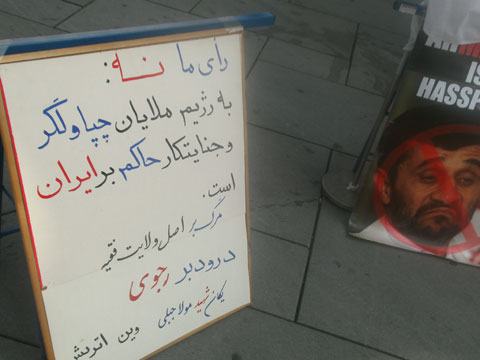 رأی ما نه :
به رژیم ملایان چپاولگر
و جنایتکار حاکم بر ایران
است.
مرگ بر اصل ولایت فقیه
درود بر رجوی
یکان شهید مولا جبلی
وین اتریش
IS
HASSP